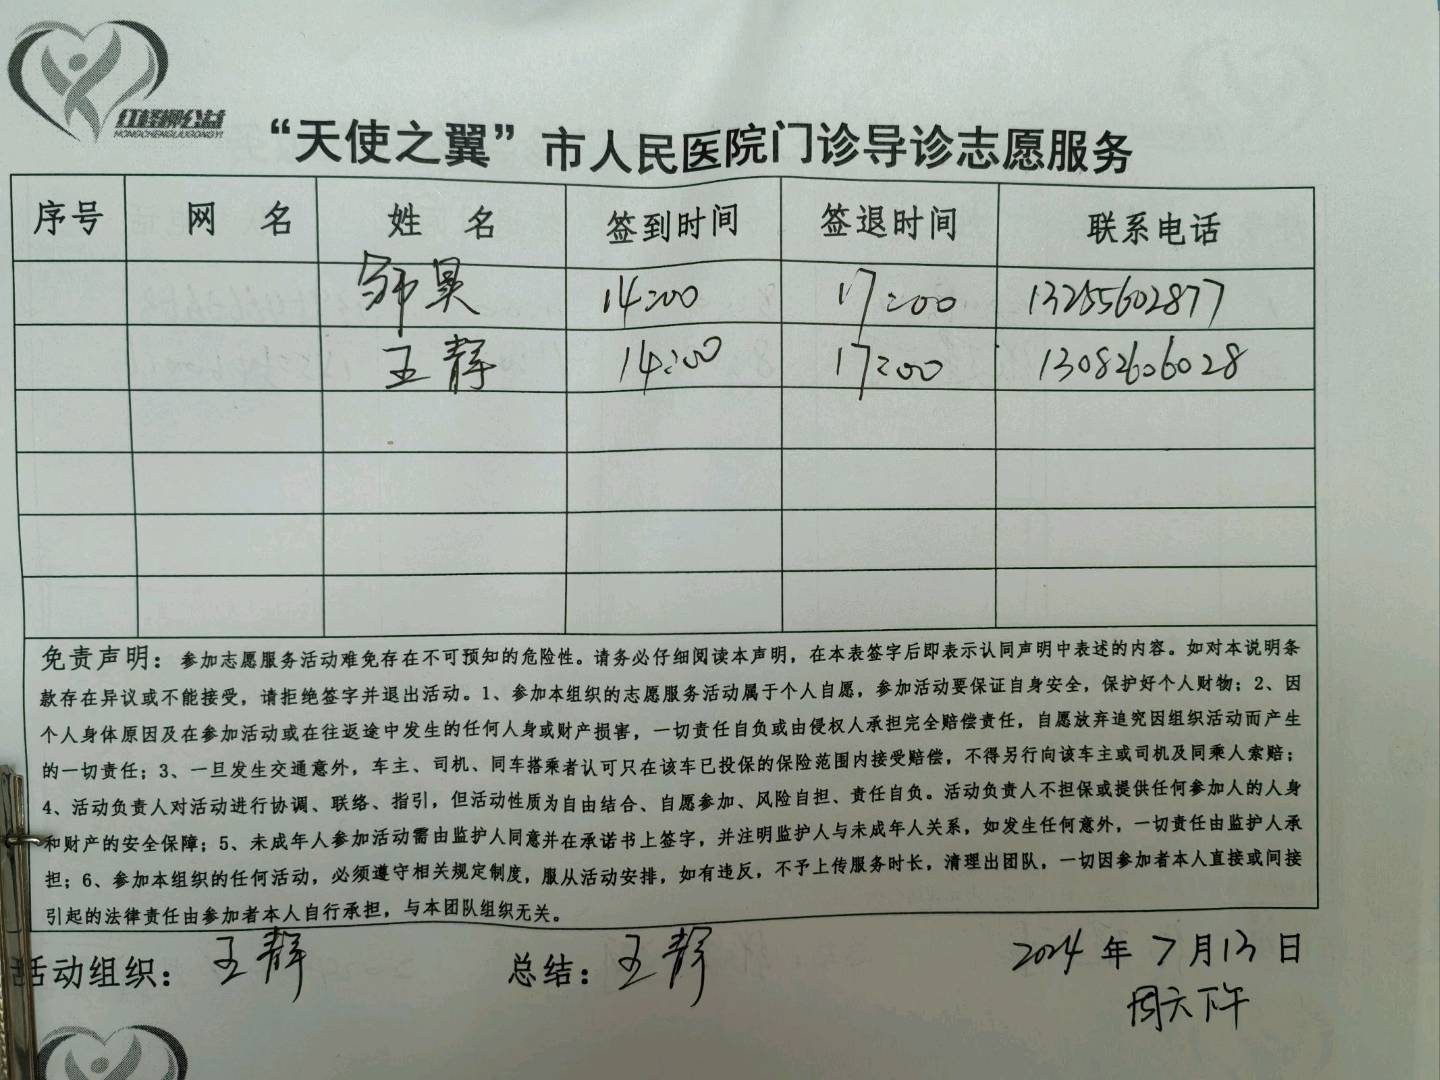 红柽柳公益
HONGCHENGLIUGONGYI
“天使之翼”市人民医院门诊导诊志愿服务
序号 网 名 姓 名 签到时间 签退时间 联系电话
昊 14:00 17:00 13255602877
王静 14:00 17:00 13082606028
免责声明：参加志愿服务活动难免存在不可预知的危险性。请务必仔细阅读本声明，在本表签字后即表示认同声明中表述的内容。如对本说明条
款存在异议或不能接受，请拒绝签字并退出活动。1、参加本组织的志愿服务活动属于个人自愿，参加活动要保证自身安全，保护好个人财物；2、因
个人身体原因及在参加活动或在往返途中发生的任何人身或财产损害，一切责任自负或由侵权人承担完全赔偿责任，自愿放弃追究因组织活动而产生
的一切责任；3、一旦发生交通意外，车主、司机、同车搭乘者认可只在该车已投保的保险范围内接受赔偿，不得另行向该车主或司机及同乘人索赔；
4、活动负责人对活动进行协调、联络、指引，但活动性质为自由结合、自愿参加、风险自担、责任自负。活动负责人不担保或提供任何参加人的人身
和财产的安全保障；5、未成年人参加活动需由监护人同意并在承诺书上签字，并注明监护人与未成年人关系，如发生任何意外，一切责任由监护人承
担；6、参加本组织的任何活动，必须遵守相关规定制度，服从活动安排，如有违反，不予上传服务时长，清理出团队，一切因参加者本人直接或间接
引起的法律责任由参加者本人自行承担，与本团队组织无关。
活动组织：王静 总结：王静 2024年7月13日
周六下午